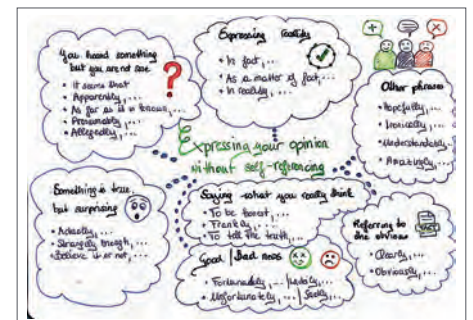 You heard something
but you are not sure
• It seems that
• Apparently, ...
• As far as it is known, ...
• Presumably, ...
• Allegedly, ...
Expressing reality
• In fact, ...
• As a matter of fact, ...
• In reality, ...
Other phrases
• Hopefully, ...
• Ironically, ...
• Understandably, ...
Expressing your opinion
without self-referencing
Something is true,
but surprising
• Actually, ...
• Strangely enough, ...
• Believe it or not, ...
Saying what you really think
• To be honest, ...
• Frankly, ...
• To tell the truth, ...
Good / Bad news
• Fortunately, ... / Luckily, ...
• Unfortunately, ... / Sadly, ...
Referring to
the obvious
• Clearly, ...
• Obviously, ...